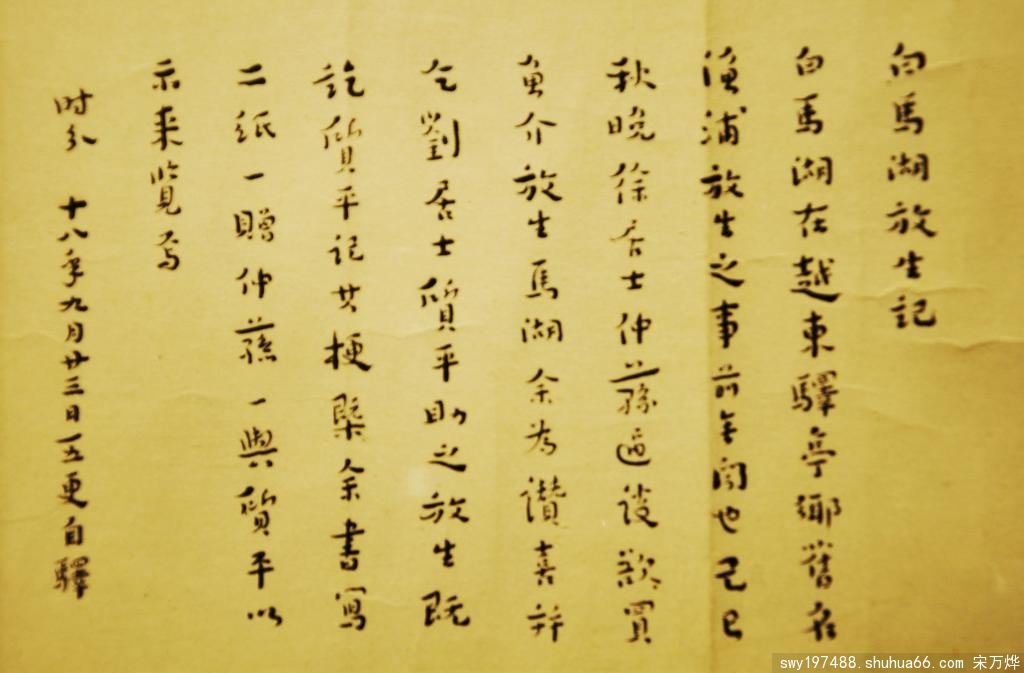 白馬湖放生記
白馬湖在越東驛亭鄉舊名
漁浦放生之事前未聞也己巳
秋晚徐居士仲蓀適談欲買
魚介放生馬湖余為讚喜并
乞劉居士質平助之放生既
訖質平記其梗槩余書寫
二紙一贈仲蓀一與質平以
示来覽焉
时分 十八年九月廿三日五更自驛
swy197488.shuhua66.com 宋万烨